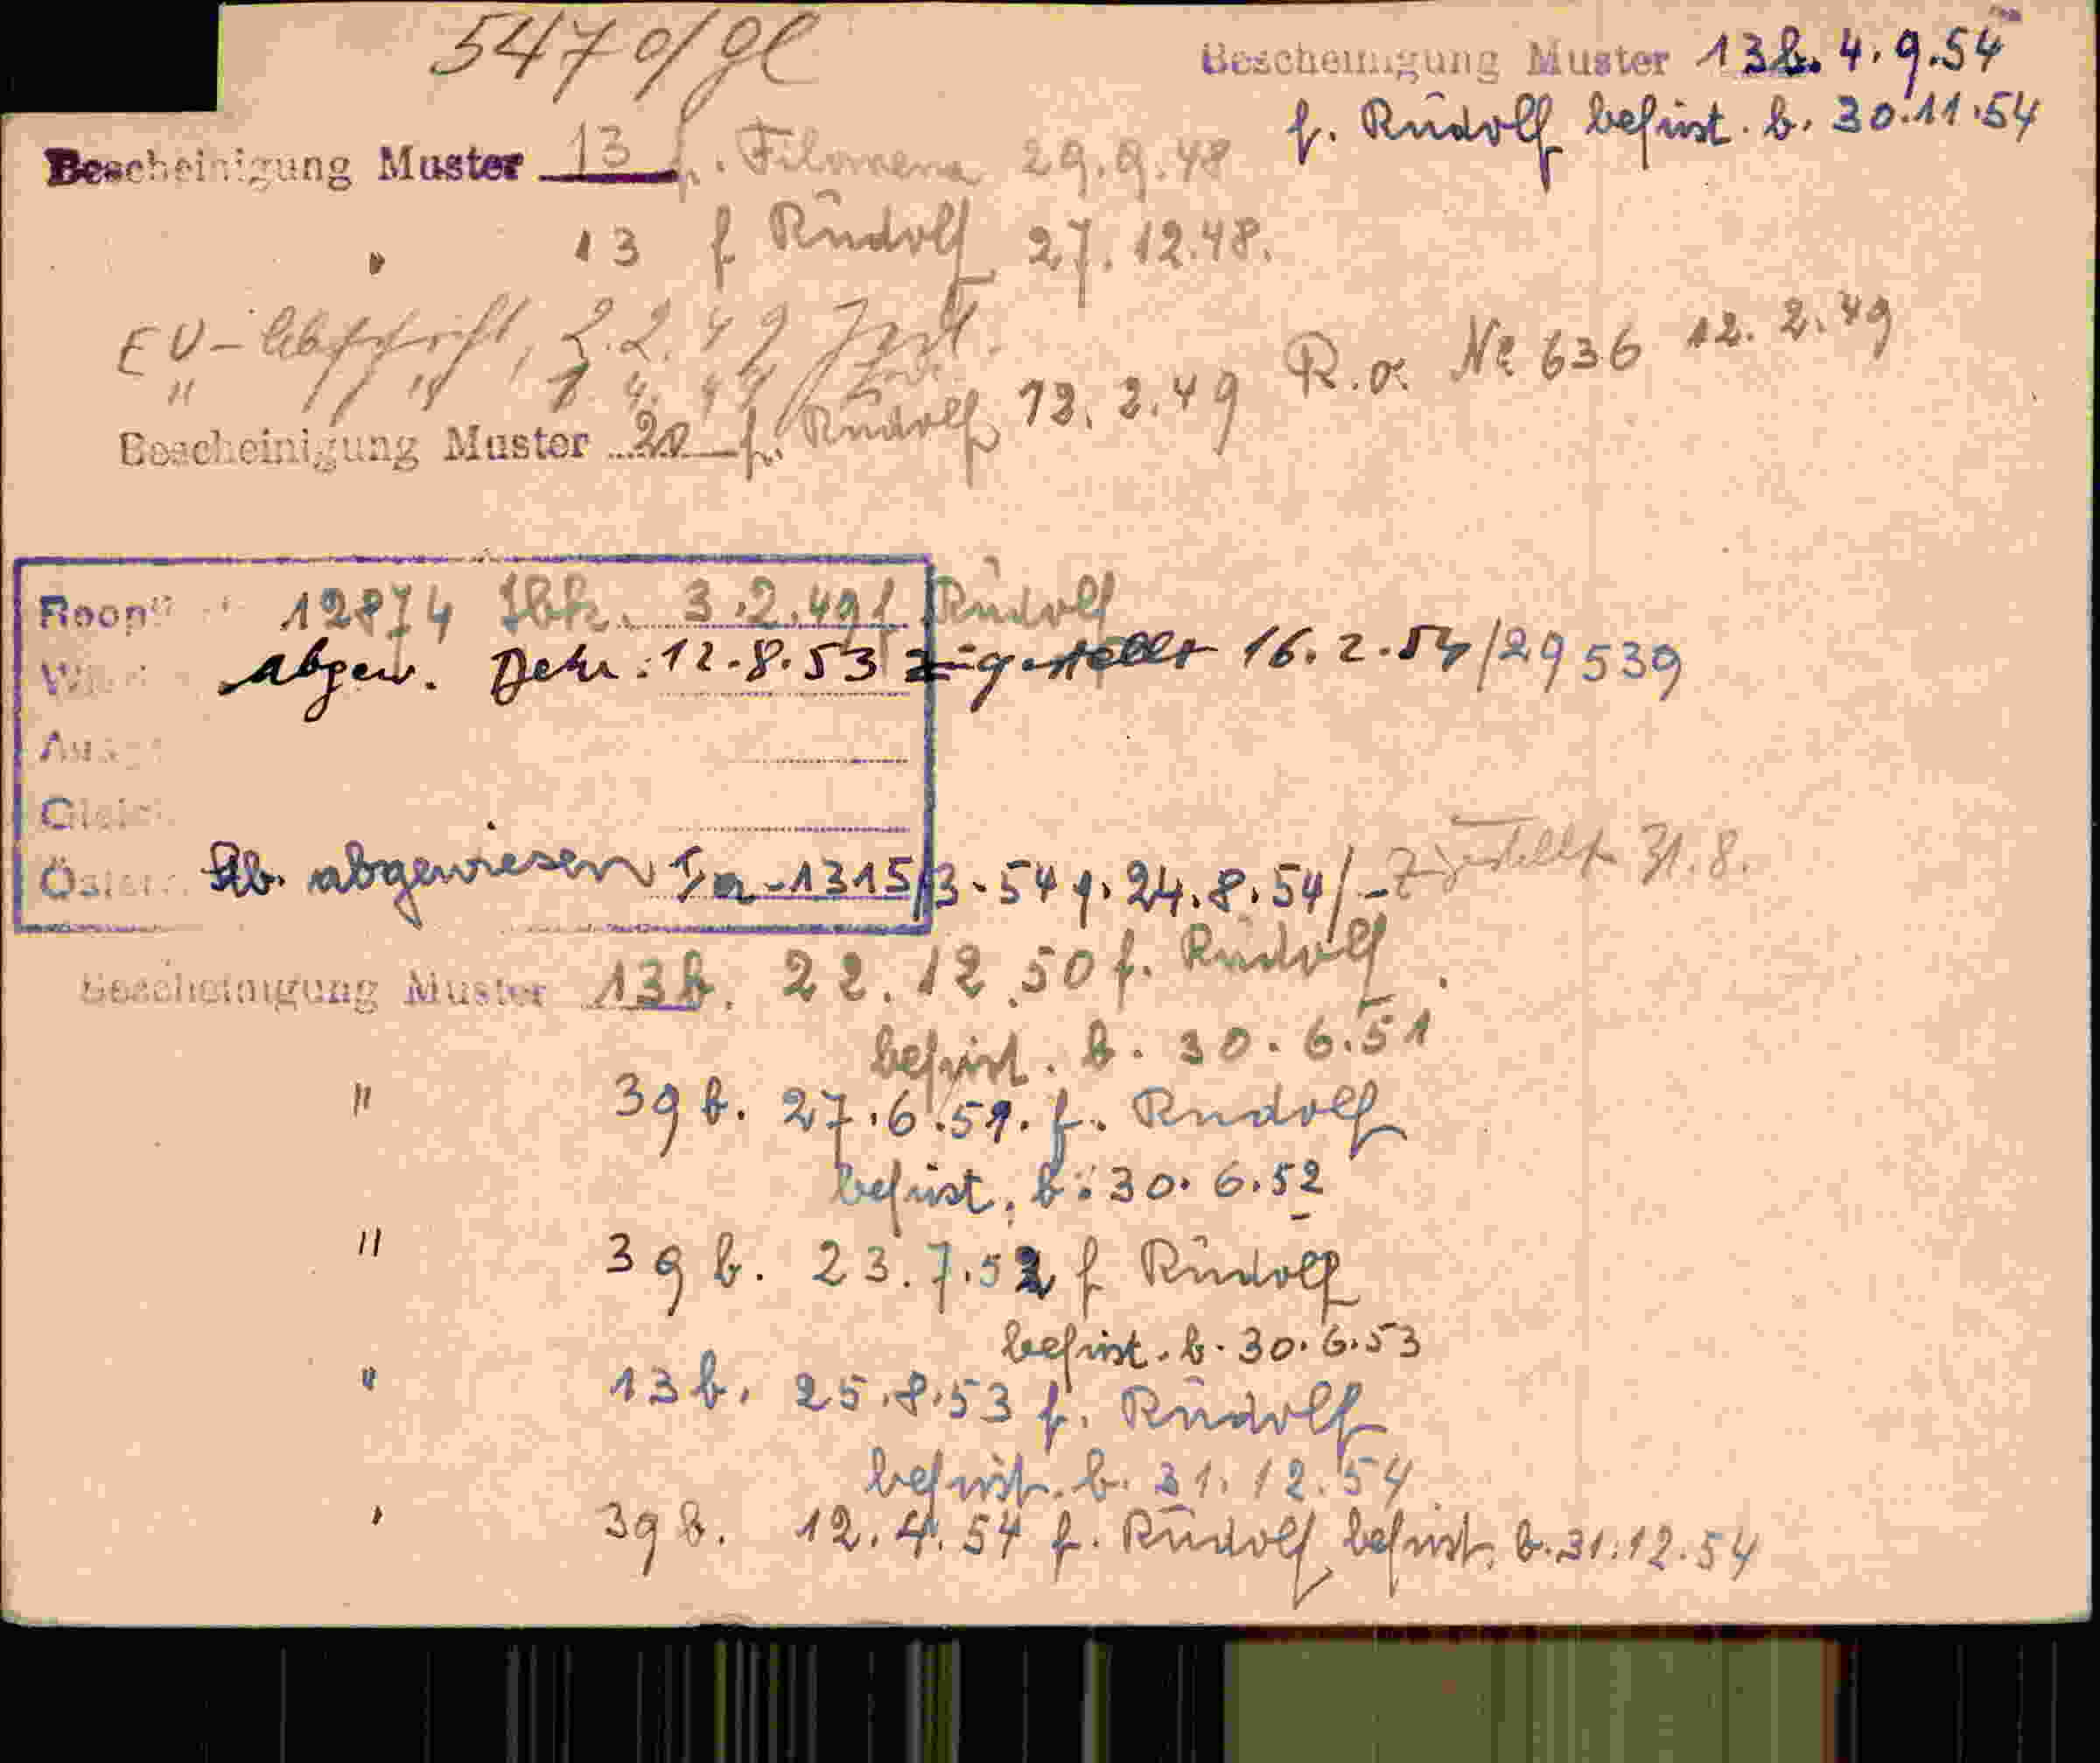 547 o/gl
Bescheinigung Muster 13b. 4.9.54
f. Rudolf befrist. b. 30.11.54
Bescheinigung Muster 13 f. Filomena 29.9.48
" 13 f Rudolf 27.12.48.
EU-Abschrift, 2.2.49
R.a. No 636 12.2.49
Bescheinigung Muster 20 f. Rudolf 12.2.49
12874 Ibk. 3.2.49 f. Rudolf
abgew. Dekr. 12.8.53 zugestellt 16.2.54/29539
abgewiesen Ia-1315/3-54 v. 24.8.54/- zugestellt 31.8.
Bescheinigung Muster 13b. 22.12.50 f. Rudolf
befrist. b. 30.6.51
" 39b. 27.6.51. f. Rudolf
befrist. b. 30.6.52
" 39b. 23.7.52 f Rudolf
befrist. b. 30.6.53
" 13b. 25.8.53 f. Rudolf
befrist. b. 31.12.54
" 39b. 12.4.54 f. Rudolf befrist. b. 31.12.54